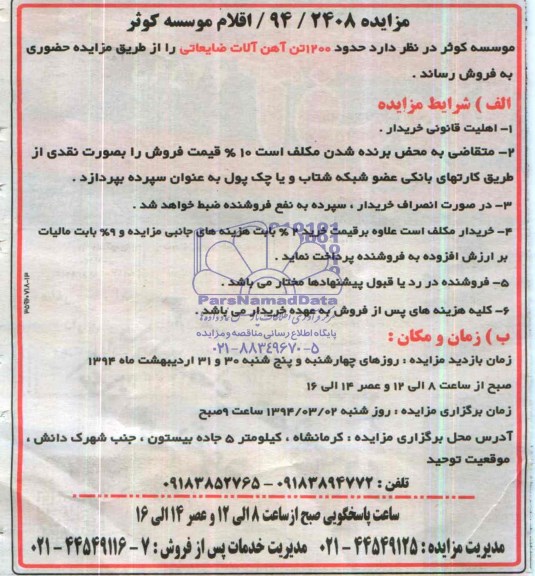 مزایده ۲۴۰۸ / ۹۴ / اقلام موسسه کوثر
موسسه کوثر در نظر دارد حدود ۱۲۰۰تن آهن آلات ضایعاتی را از طریق مزایده حضوری
به فروش رساند .
الف ) شرایط مزایده
۱- اهلیت قانونی خریدار .
۲- متقاضی به محض برنده شدن مکلف است ۱۰ % قیمت فروش را بصورت نقدی از
طریق کارتهای بانکی عضو شبکه شتاب و یا چک پول به عنوان سپرده بپردازد .
۳- در صورت انصراف خریدار ، سپرده به نفع فروشنده ضبط خواهد شد .
۴- خریدار مکلف است علاوه برقیمت خرید ۲ % بابت هزینه های جانبی مزایده و ۹% بابت مالیات
بر ارزش افزوده به فروشنده پرداخت نماید .
۵- فروشنده در رد یا قبول پیشنهادها مختار می باشد .
ParsNamadData
۶- کلیه هزینه های پس از فروش به عهده خریدار می باشد .
پایگاه اطلاع رسانی مناقصه و مزایده
ب ) زمان و مکان :
۰۲۱-۸۸۳۴۹۶۷۰-۵
زمان بازدید مزایده : روزهای چهارشنبه و پنج شنبه ۳۰ و ۳۱ اردیبهشت ماه ۱۳۹۴
صبح از ساعت ۸ الی ۱۲ و عصر ۱۴ الی ۱۶
زمان برگزاری مزایده : روز شنبه ۱۳۹۴/۰۳/۰۲ ساعت ۹صبح
آدرس محل برگزاری مزایده : کرمانشاه ، کیلومتر ۵ جاده بیستون ، جنب شهرک دانش ،
موقعیت توحید
تلفن : ۰۹۱۸۳۸۹۴۷۷۲ - ۰۹۱۸۳۸۵۲۷۶۵
ساعت پاسخگویی صبح ازساعت ۸ الی ۱۲ و عصر ۱۴ الی ۱۶
مدیریت مزایده : ۴۴۵۴۹۱۲۵ - ۰۲۱ مدیریت خدمات پس از فروش : ۷ - ۴۴۵۴۹۱۱۶ - ۰۲۱